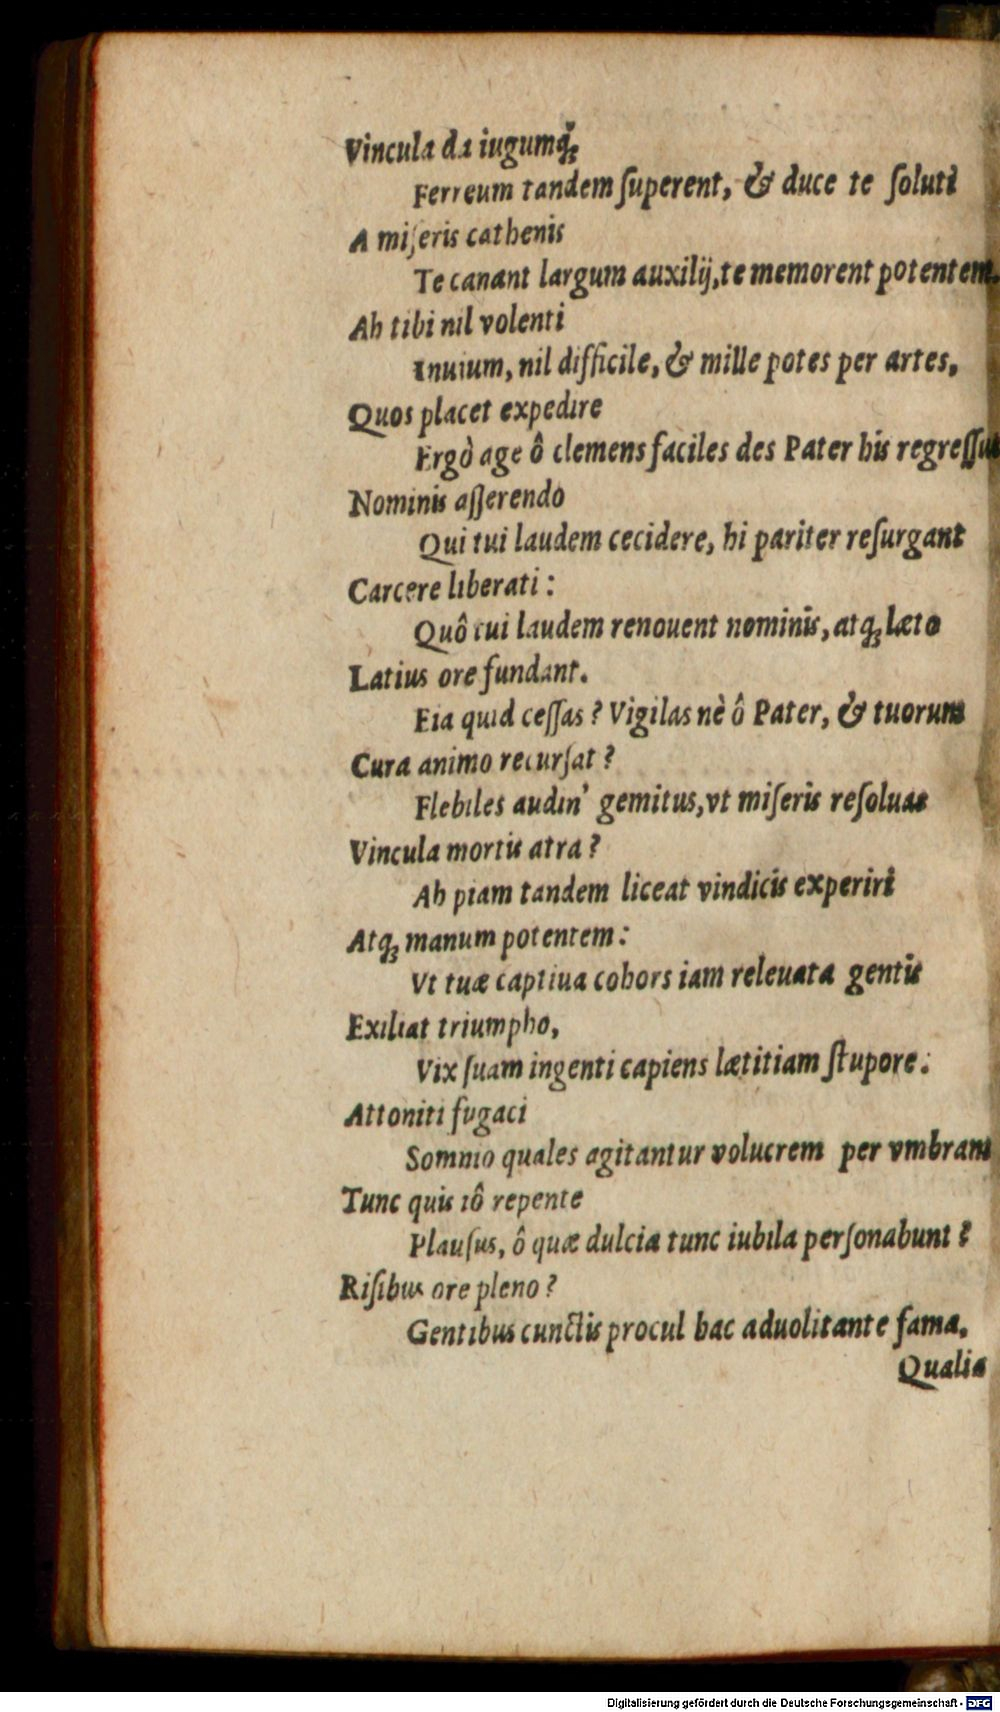 Vincula da iugumq́ꝫ
Ferreum tandem ſuperent, & duce te ſoluti
A miſeris cathenis
Te canant largum auxilij, te memorent potentem.
Ah tibi nil volenti
Inuium, nil difficile, & mille potes per artes,
Quos placet expedire
Ergò age ô clemens faciles des Pater his regreſſus
Nominis aſſerendo
Qui tui laudem cecidere, hi pariter reſurgant
Carcere liberati:
Quô tui laudem renouent nominis, atqꝫ læto
Latius ore fundant.
Eia quid ceſſas? Vigilas nè ô Pater, & tuorum
Cura animo recurſat?
Flebiles audin' gemitus, vt miſeris reſoluas
Vincula mortis atra?
Ah piam tandem liceat vindicis experiri
Atqꝫ manum potentem:
Vt tuæ captiua cohors iam releuata gentis
Exiliat triumpho,
Vix ſuam ingenti capiens lætitiam ſtupore:
Attoniti fugaci
Somnio quales agitantur volucrem per vmbram
Tunc quis iô repente
Plauſus, ô quæ dulcia tunc iubila perſonabunt?
Riſibus ore pleno?
Gentibus cunctis procul hac aduolitante fama,
Qualia
Digitalisierung gefördert durch die Deutsche Forschungsgemeinschaft - DFG